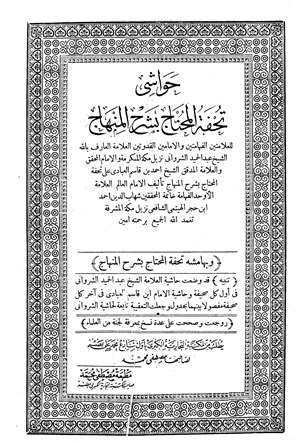 حواشى
تحفة المحتاج بشرح المنهاج
للعلامتين الفهامتين والامامين القدوتين العلامة العارف بالله
الشيخ عبد الحميد الشروانى نزيل مكة المكرمة والامام المحقق
والعلامة المدقق الشيخ احمد بن قاسم العبادى على تحفة
المحتاج بشرح المنهاج تأليف الامام العالم العلامة
الاوحد الفهامة خاتمة المحققين شهاب الدين احمد
ابن حجر الهيتمى الشافعى نزيل مكة المشرفة
تغمد الله الجميع برحمته امين
﴿ وبهامشه تحفة المحتاج بشرح المنهاج ﴾
﴿ تنبيه ﴾ قد وضعت حاشية العلامة الشيخ عبد الحميد الشروانى
فى أول كل صحيفة وحاشية الامام ابن قاسم العبادى فى آخر كل
صحيفة مفصولا بينهما بجدول وجعلت البقية تابعة لحاشية الشروانى
﴿ روجعت وصححت على عدة نسخ بمعرفة لجنة من العلماء ﴾
يطلب من المكتبة التجارية الكبرى بأول شارع محمد على بمصر
لصاحبها مصطفى محمد
مطبعة مصطفى محمد